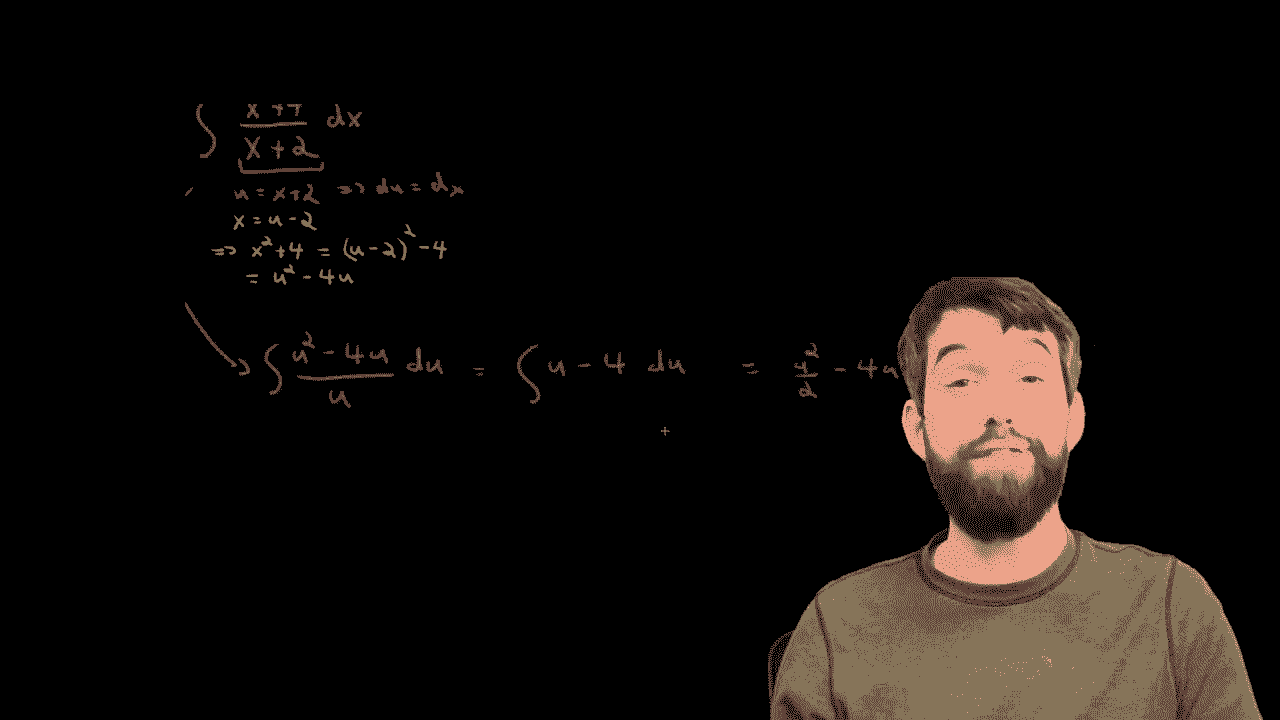 ∫ x+4 / x+2 dx
u = x+2 => du = dx
x = u-2
=> x²+4 = (u-2)² -4
= u² - 4u
∫ u² - 4u / u du = ∫ u - 4 du = u²/2 - 4u